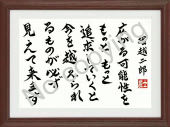 堀越二郎
広がる可能性を
もっと、もっと
追求していくと
今を越えられ
るものが必ず
見えて来ます
No copying